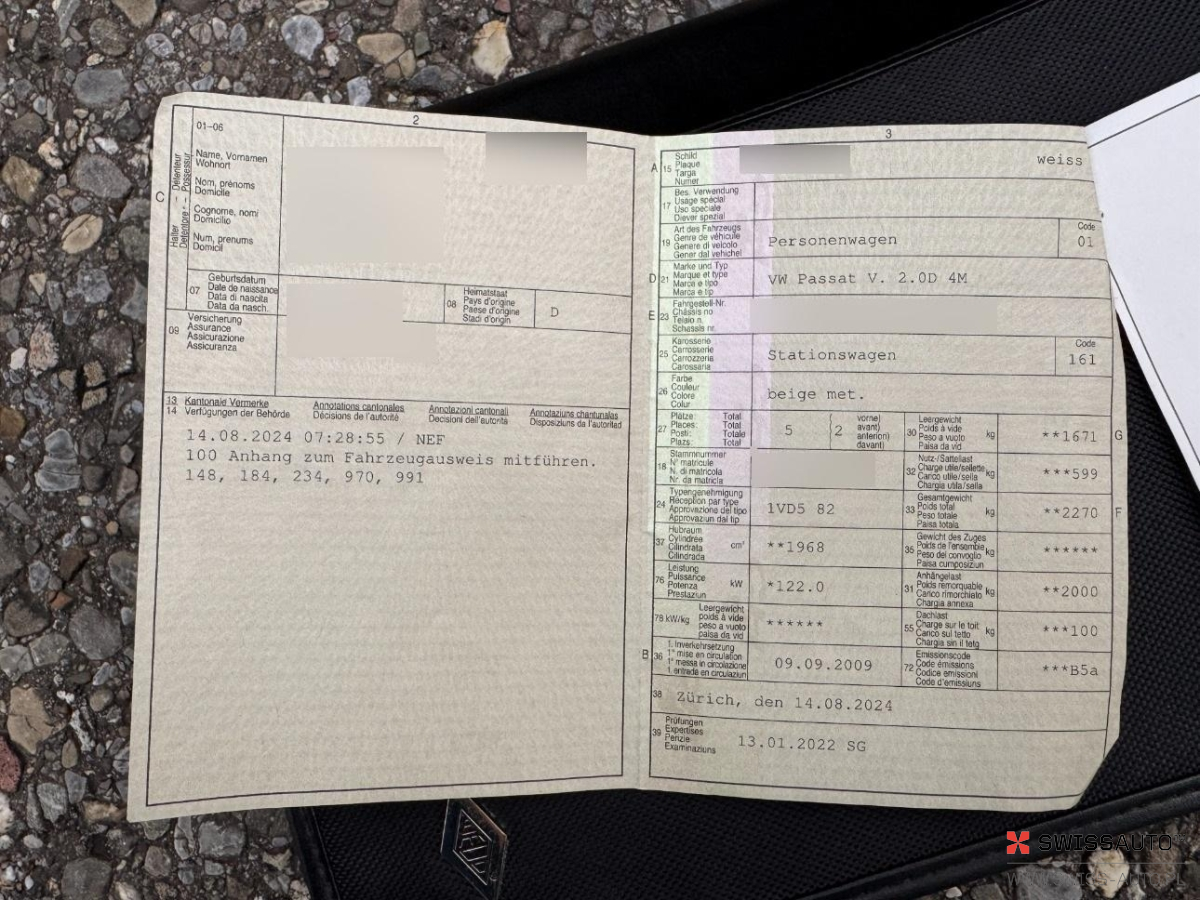 2
01-06
C
Halter - Détenteur
Detentore - Possessur
Name, Vornamen
Wohnort
Nom, prénoms
Domicile
Cognome, nomi
Domicilio
Num, prenums
Domicil
07
Geburtsdatum
Date de naissance
Data di nascita
Data da nasch.
08
Heimatstaat
Pays d'origine
Paese d'origine
Stadi d'origin
D
09
Versicherung
Assurance
Assicurazione
Assicuranza
13 Kantonale Vermerke Annotations cantonales Annotazioni cantonali Annotaziuns chantunalas
14 Verfügungen der Behörde Décisions de l'autorité Decisioni dell'autorità Disposiziuns da l'autoritad
14.08.2024 07:28:55 / NEF
100 Anhang zum Fahrzeugausweis mitführen.
148, 184, 234, 970, 991
3
A 15
Schild
Plaque
Targa
Numer
weiss
17
Bes. Verwendung
Usage spécial
Uso speciale
Diever spezial
19
Art des Fahrzeugs
Genre de véhicule
Genere di veicolo
Gener dal vehichel
Personenwagen
Code
01
D 21
Marke und Typ
Marque et type
Marca e tipo
Marca e tip
VW Passat V. 2.0D 4M
E 23
Fahrgestell-Nr.
Châssis no
Telaio n.
Schassis nr.
25
Karosserie
Carrosserie
Carrozzeria
Carossaria
Stationswagen
Code
161
26
Farbe
Couleur
Colore
Colur
beige met.
27
Plätze: Total
Places: Total
Posti: Totale
Plazs: Total
5
2
vorne)
avant)
anteriori)
davant)
30
Leergewicht
Poids à vide
Peso a vuoto
Paisa da vid
kg
**1671
G
18
Stammnummer
N° matricule
N. di matricola
Nr. da matricla
32
Nutz-/Sattellast
Charge utile/sellette
Carico utile/sella
Chargia utila/sella
kg
***599
24
Typengenehmigung
Réception par type
Approvazione del tipo
Approvaziun dal tip
1VD5 82
33
Gesamtgewicht
Poids total
Peso totale
Paisa totala
kg
**2270
F
37
Hubraum
Cylindrée
Cilindrata
Cilindrada
cm³
**1968
35
Gewicht des Zuges
Poids de l'ensemble
Peso del convoglio
Paisa cumposiziun
kg
******
76
Leistung
Puissance
Potenza
Prestaziun
kW
*122.0
31
Anhängelast
Poids remorquable
Carico rimorchiato
Chargia annexa
kg
**2000
78 kW/kg
Leergewicht
poids à vide
peso a vuoto
paisa da vid
******
55
Dachlast
Charge sur le toit
Carico sul tetto
Chargia sin il tetg
kg
***100
B 36
1. Inverkehrsetzung
1re mise en circulation
1a messa in circolazione
1. entrada en circulaziun
09.09.2009
72
Emissionscode
Code émissions
Codice emissioni
Code d'emissiuns
***B5a
38
Zürich, den 14.08.2024
39
Prüfungen
Expertises
Perizie
Examinaziuns
13.01.2022 SG
SWISSAUTO